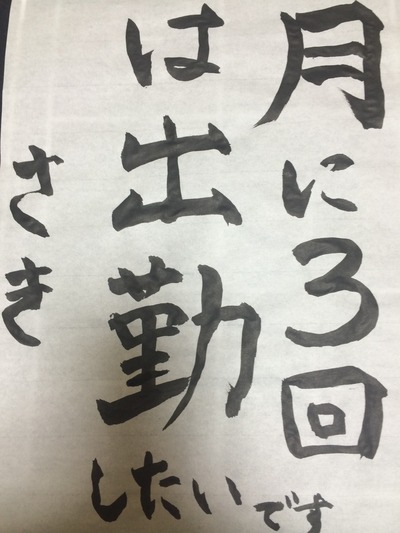 月に3回
は出勤
したいです
さき